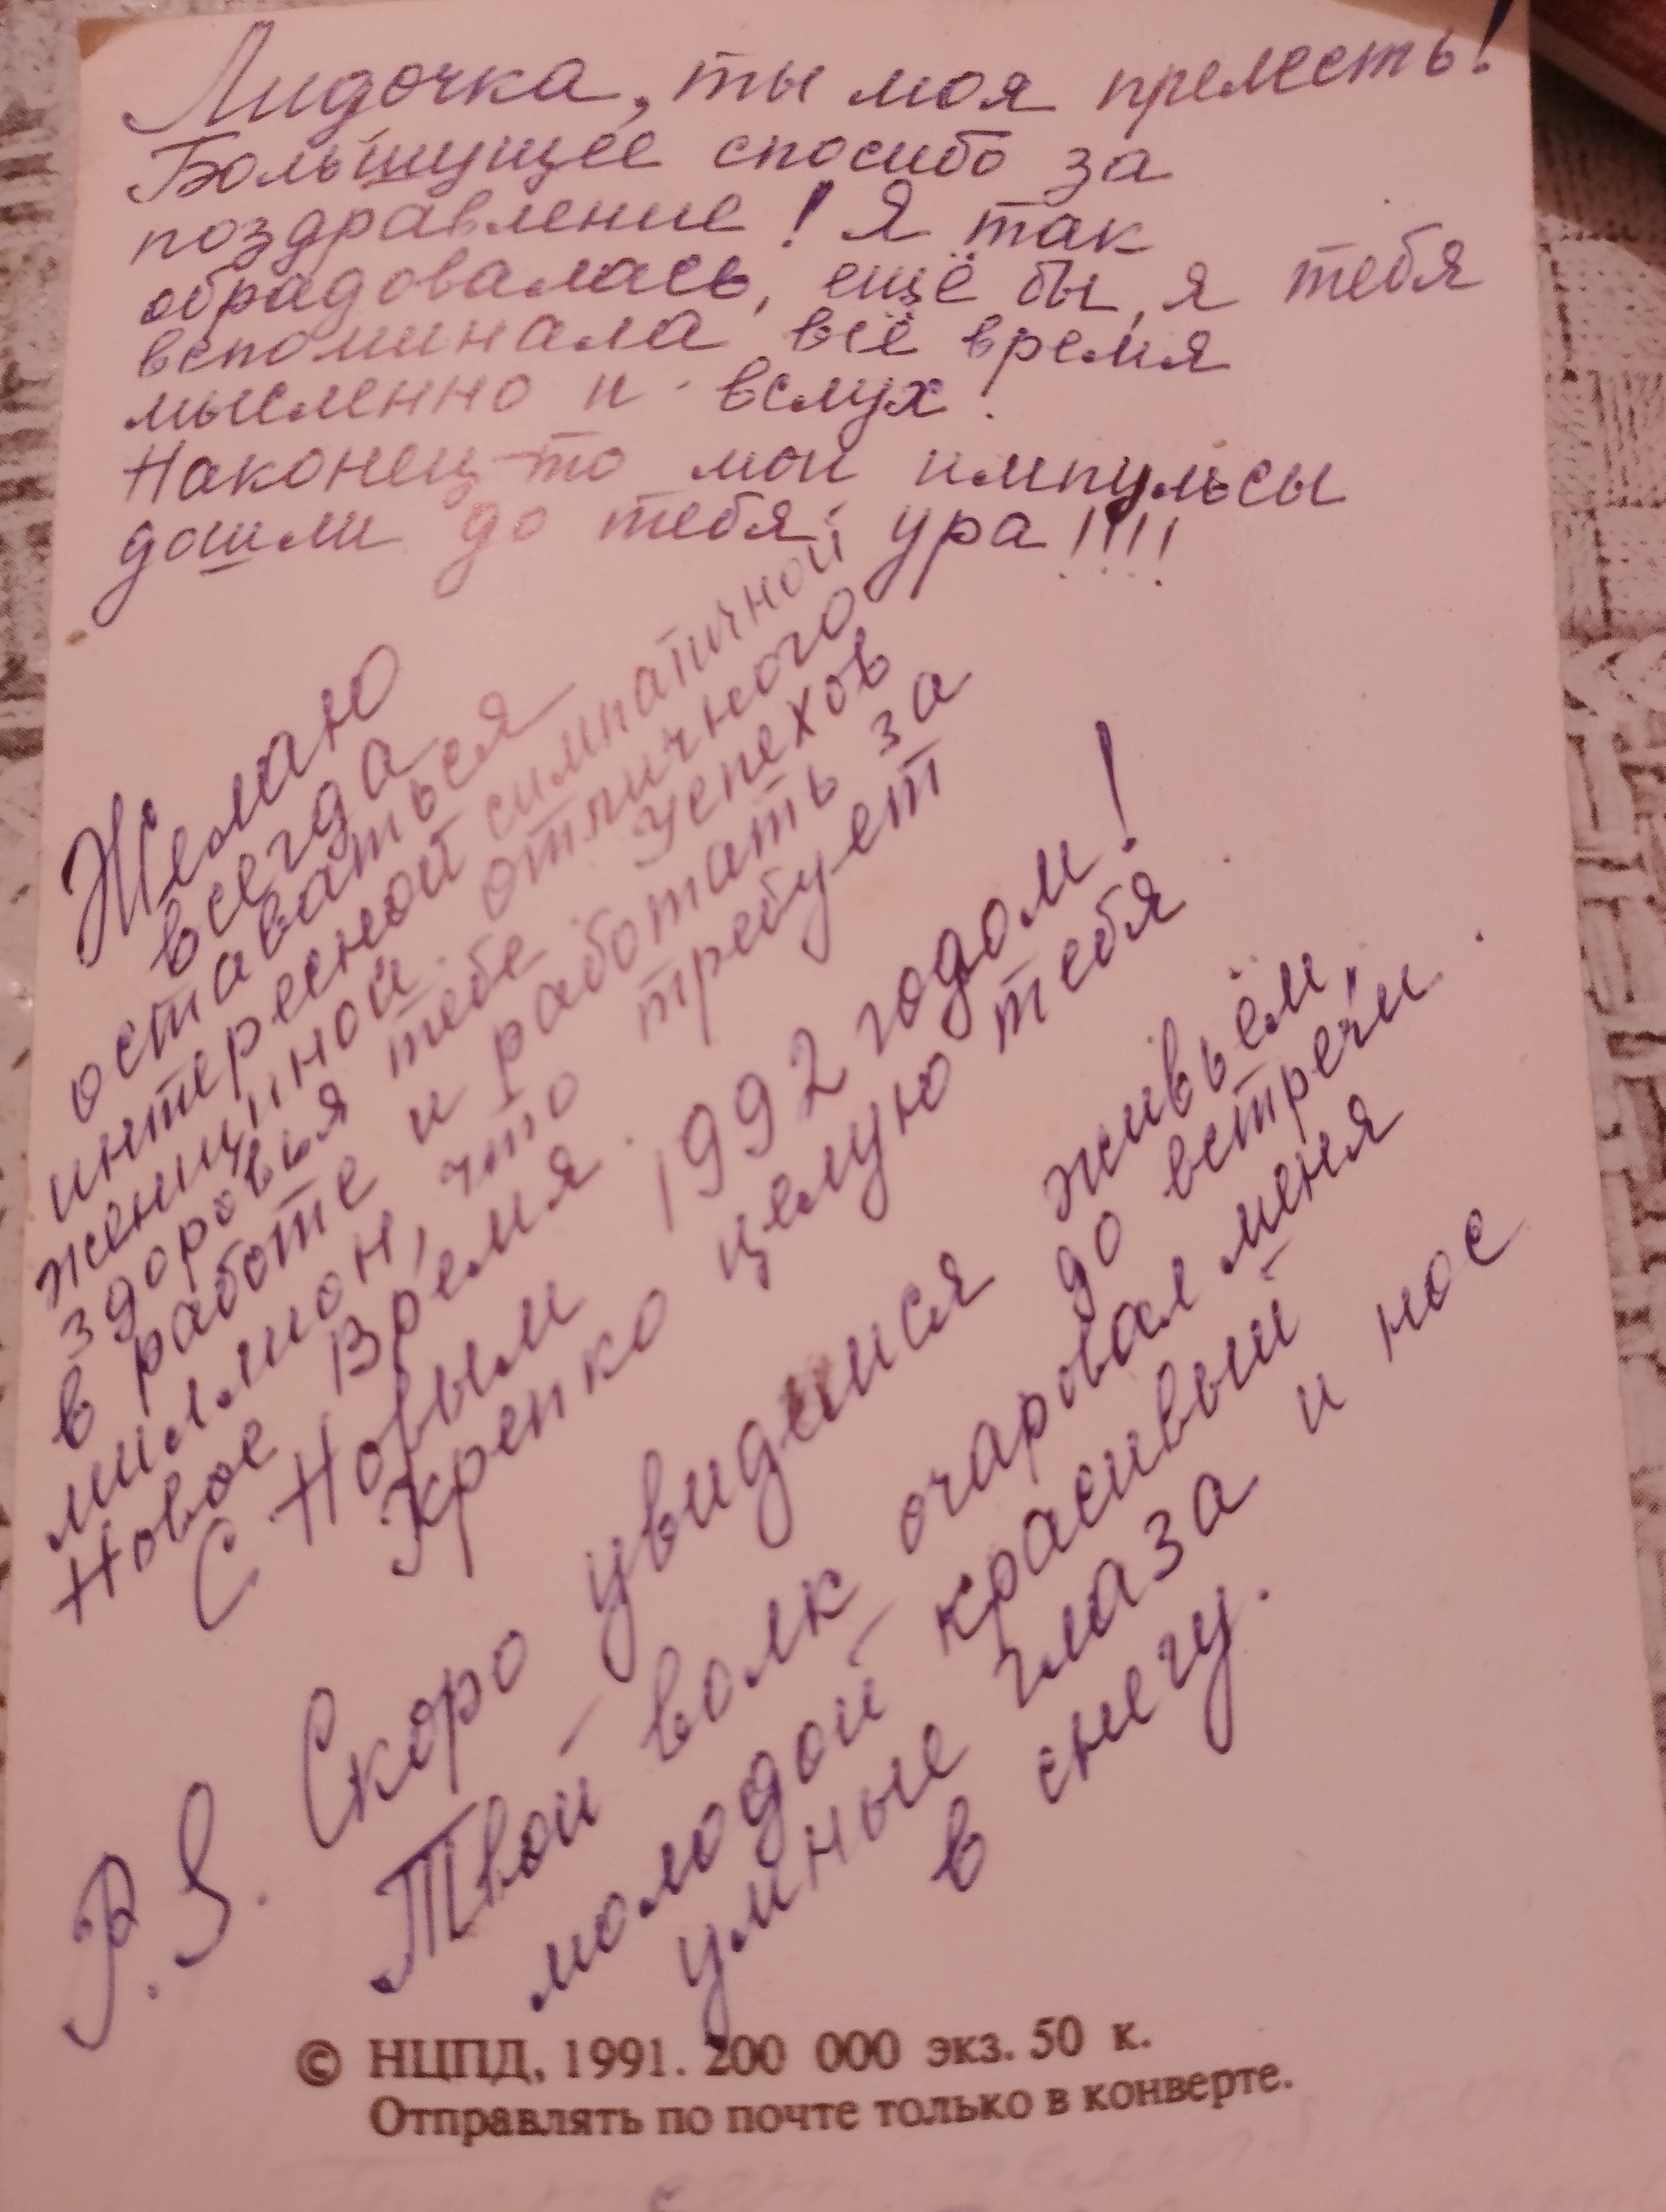 Лидочка, ты моя прелесть!
Большущее спосибо за
поздравление! Я так
обрадовалась, ещё бы, я тебя
вспоминала всё время
мысленно и вслух!
Наконец-то мои импульсы
дошли до тебя, ура!!!!
Желаю
всегда
оставаться
интересной симпатичной
женщиной. отличного
здоровья тебе успехов
в работе и работать за
миллион, что требует
Новое Время.
С Новым 1992 годом!
Крепко целую тебя
P.S. Скоро увидимся живьём,
до встречи.
Твой – волк очаровал меня
молодой – красивый –
умные глаза и нос
в снегу.
© НЦПД, 1991. 200 000 экз. 50 к.
Отправлять по почте только в конверте.